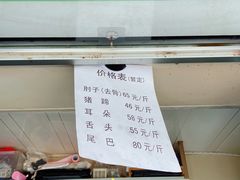 价格表(暂定)
肘子(去骨)65元/斤
猪蹄 46元/斤
耳朵 58元/斤
舌头 55元/斤
尾巴 80元/斤